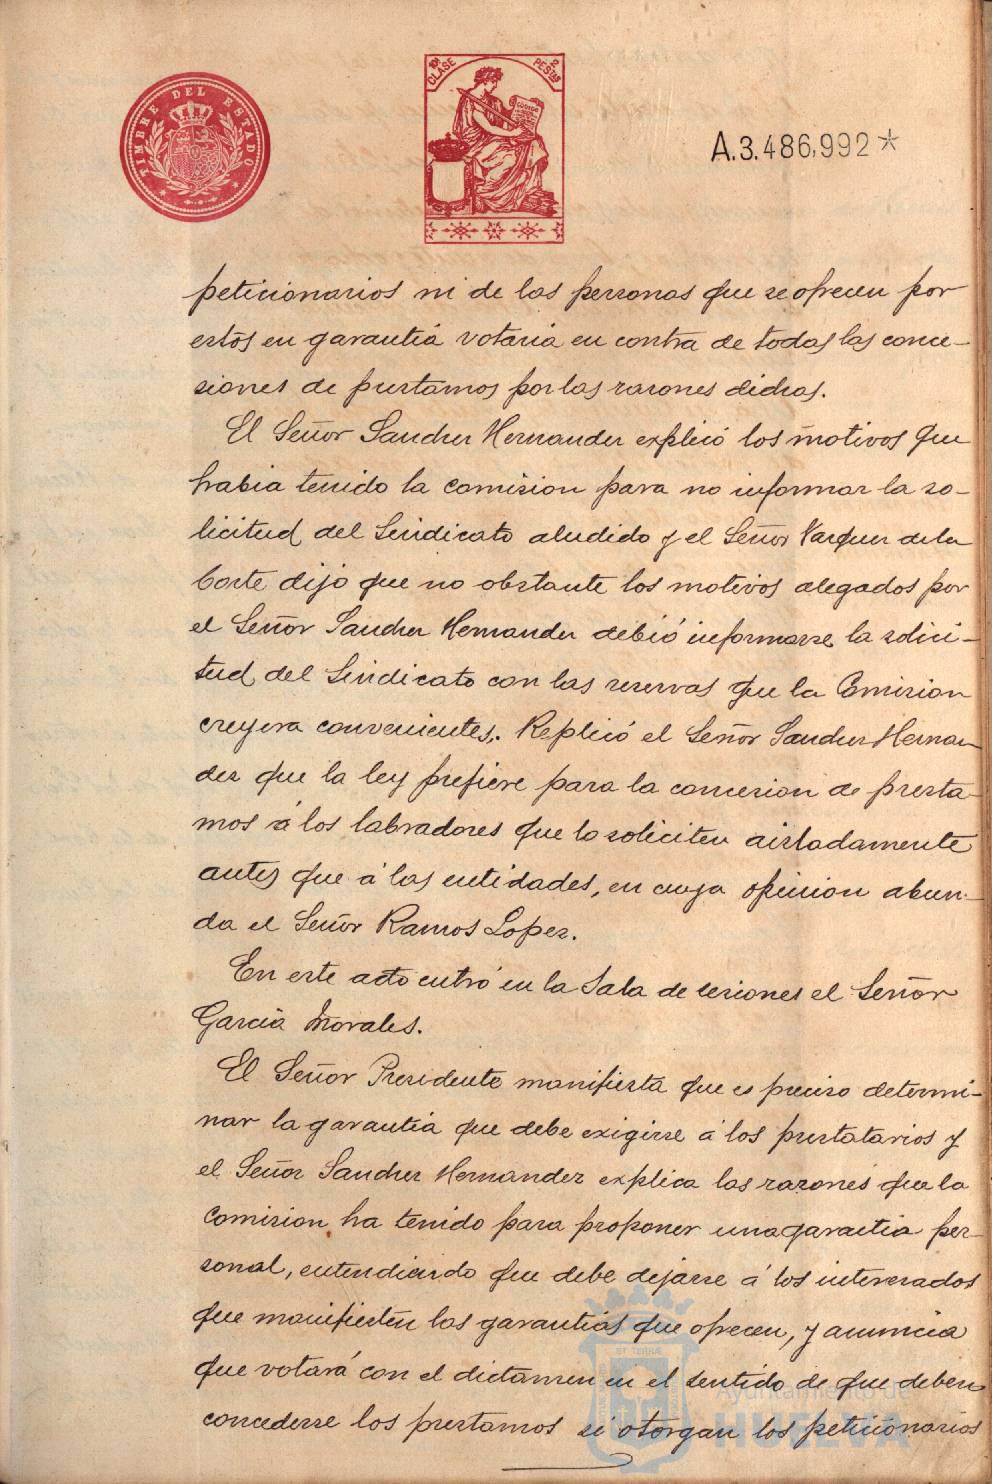 TIMBRE DEL ESTADO
10ª CLASE 2 PESTAS
CODIGO
A.3.486,992*
peticionarios ni de las personas que se ofrecen por
estos en garantia votaria en contra de todas las conce-
siones de prestamos por las razones dichas.
El Señor Sanchez Hernandez explicó los motivos que
habia tenido la comision para no informar la so-
licitud del Sindicato aludido y el Señor Vazquez de la
Corte dijo que no obstante los motivos alegados por
el Señor Sanchez Hernandez debió informarse la solici-
tud del Sindicato con las reservas que la Comision
creyera convenientes. Replicó el Señor Sanchez Hernan-
dez que la ley prefiere para la concesion de presta-
mos á los labradores que lo soliciten aisladamente
antes que á las entidades, en cuya opinion abun-
da el Señor Ramos Lopez.
En este acto entró en la Sala de sesiones el Señor
Garcia Morales.
El Señor Presidente manifiesta que es preciso determi-
nar la garantia que debe exigirse á los prestatarios y
el Señor Sanchez Hernandez explica las razones que la
comision ha tenido para proponer una garantia per-
sonal, entendiendo que debe dejarse á los interesados
que manifiesten las garantias que ofrecen, y anuncia
que votará con el dictamen en el sentido de que deben
concederse los prestamos si otorgan los peticionarios
Ayuntamiento de
HUELVA